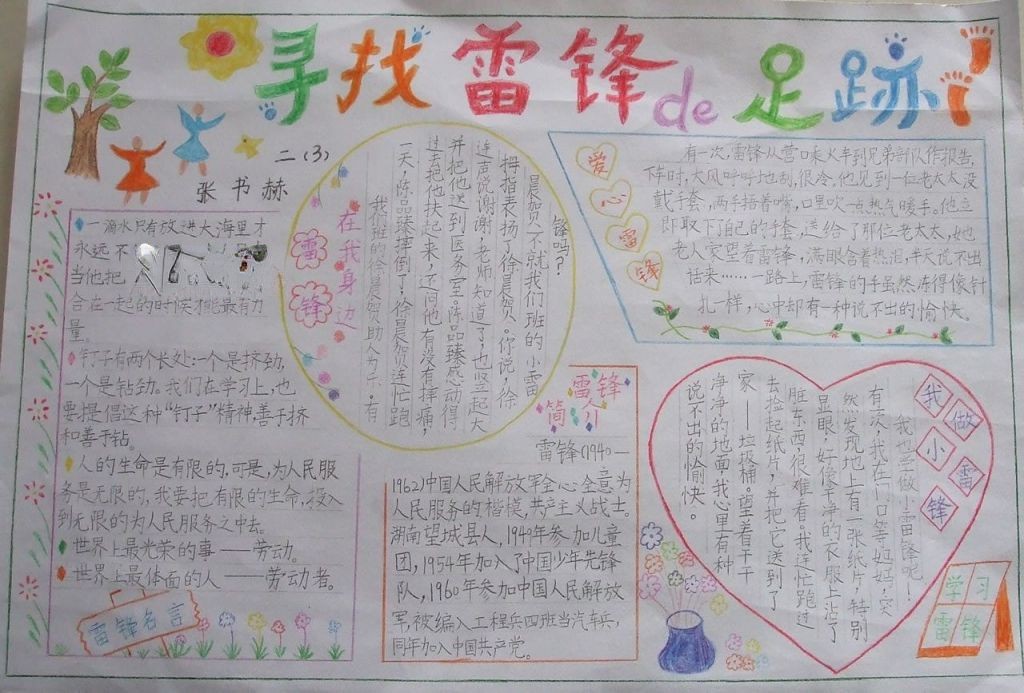 寻找雷锋de足迹
二(3)
张书赫
一滴水只有放进大海里才
永远不
当他把
合在一起的时候才能最有力
量。
钉子有两个长处:一个是挤劲,
一个是钻劲。我们在学习上,也
要提倡这种“钉子”精神,善于挤
和善于钻。
人的生命是有限的,可是,为人民服
务是无限的,我要把有限的生命,投入
到无限的为人民服务之中去。
世界上最光荣的事——劳动。
世界上最体面的人——劳动者。
雷锋名言
在我身边
雷锋
我们班的徐晨贺助人为乐,有
一天,陈品臻摔倒了,徐晨贺连忙跑
过去把他扶起来,还问他有没有摔痛,
并把他送到医务室。陈品臻感动得
连声说谢谢,老师知道了,也竖起大
拇指表扬了徐晨贺。你说,徐
晨贺不就我们班的小雷
锋吗?
爱心雷锋
有一次,雷锋从营口乘火车到兄弟部队作报告,
下车时,大风呼呼地刮,很冷,他见到一位老太太没
戴手套,两手捂着嘴,口里吹一点热气暖手。他立
即取下自己的手套,送给了那位老太太,她
老人家望着雷锋,满眼含着热泪,半天说不出
话来……一路上,雷锋的手虽然冻得像针
扎一样,心中却有一种说不出的愉快。
雷锋
简介
雷锋(1940—
1962)中国人民解放军全心全意为
人民服务的楷模,共产主义战士。
湖南望城县人,1949年参加儿童
团,1954年加入了中国少年先锋
队,1960年参加中国人民解放
军,被编入工程兵四班当汽车兵,
同年加入中国共产党。
我做小雷锋
我也学做小雷锋呢!
有次,我在门口等妈妈,突
然发现地上有一张纸片,特别
显眼,好像干净的衣服上沾了
脏东西,很难看。我连忙跑过
去捡起纸片,并把它送到了
家——垃圾桶。望着干干
净净的地面,我心里有种
说不出的愉快。
学习
雷锋